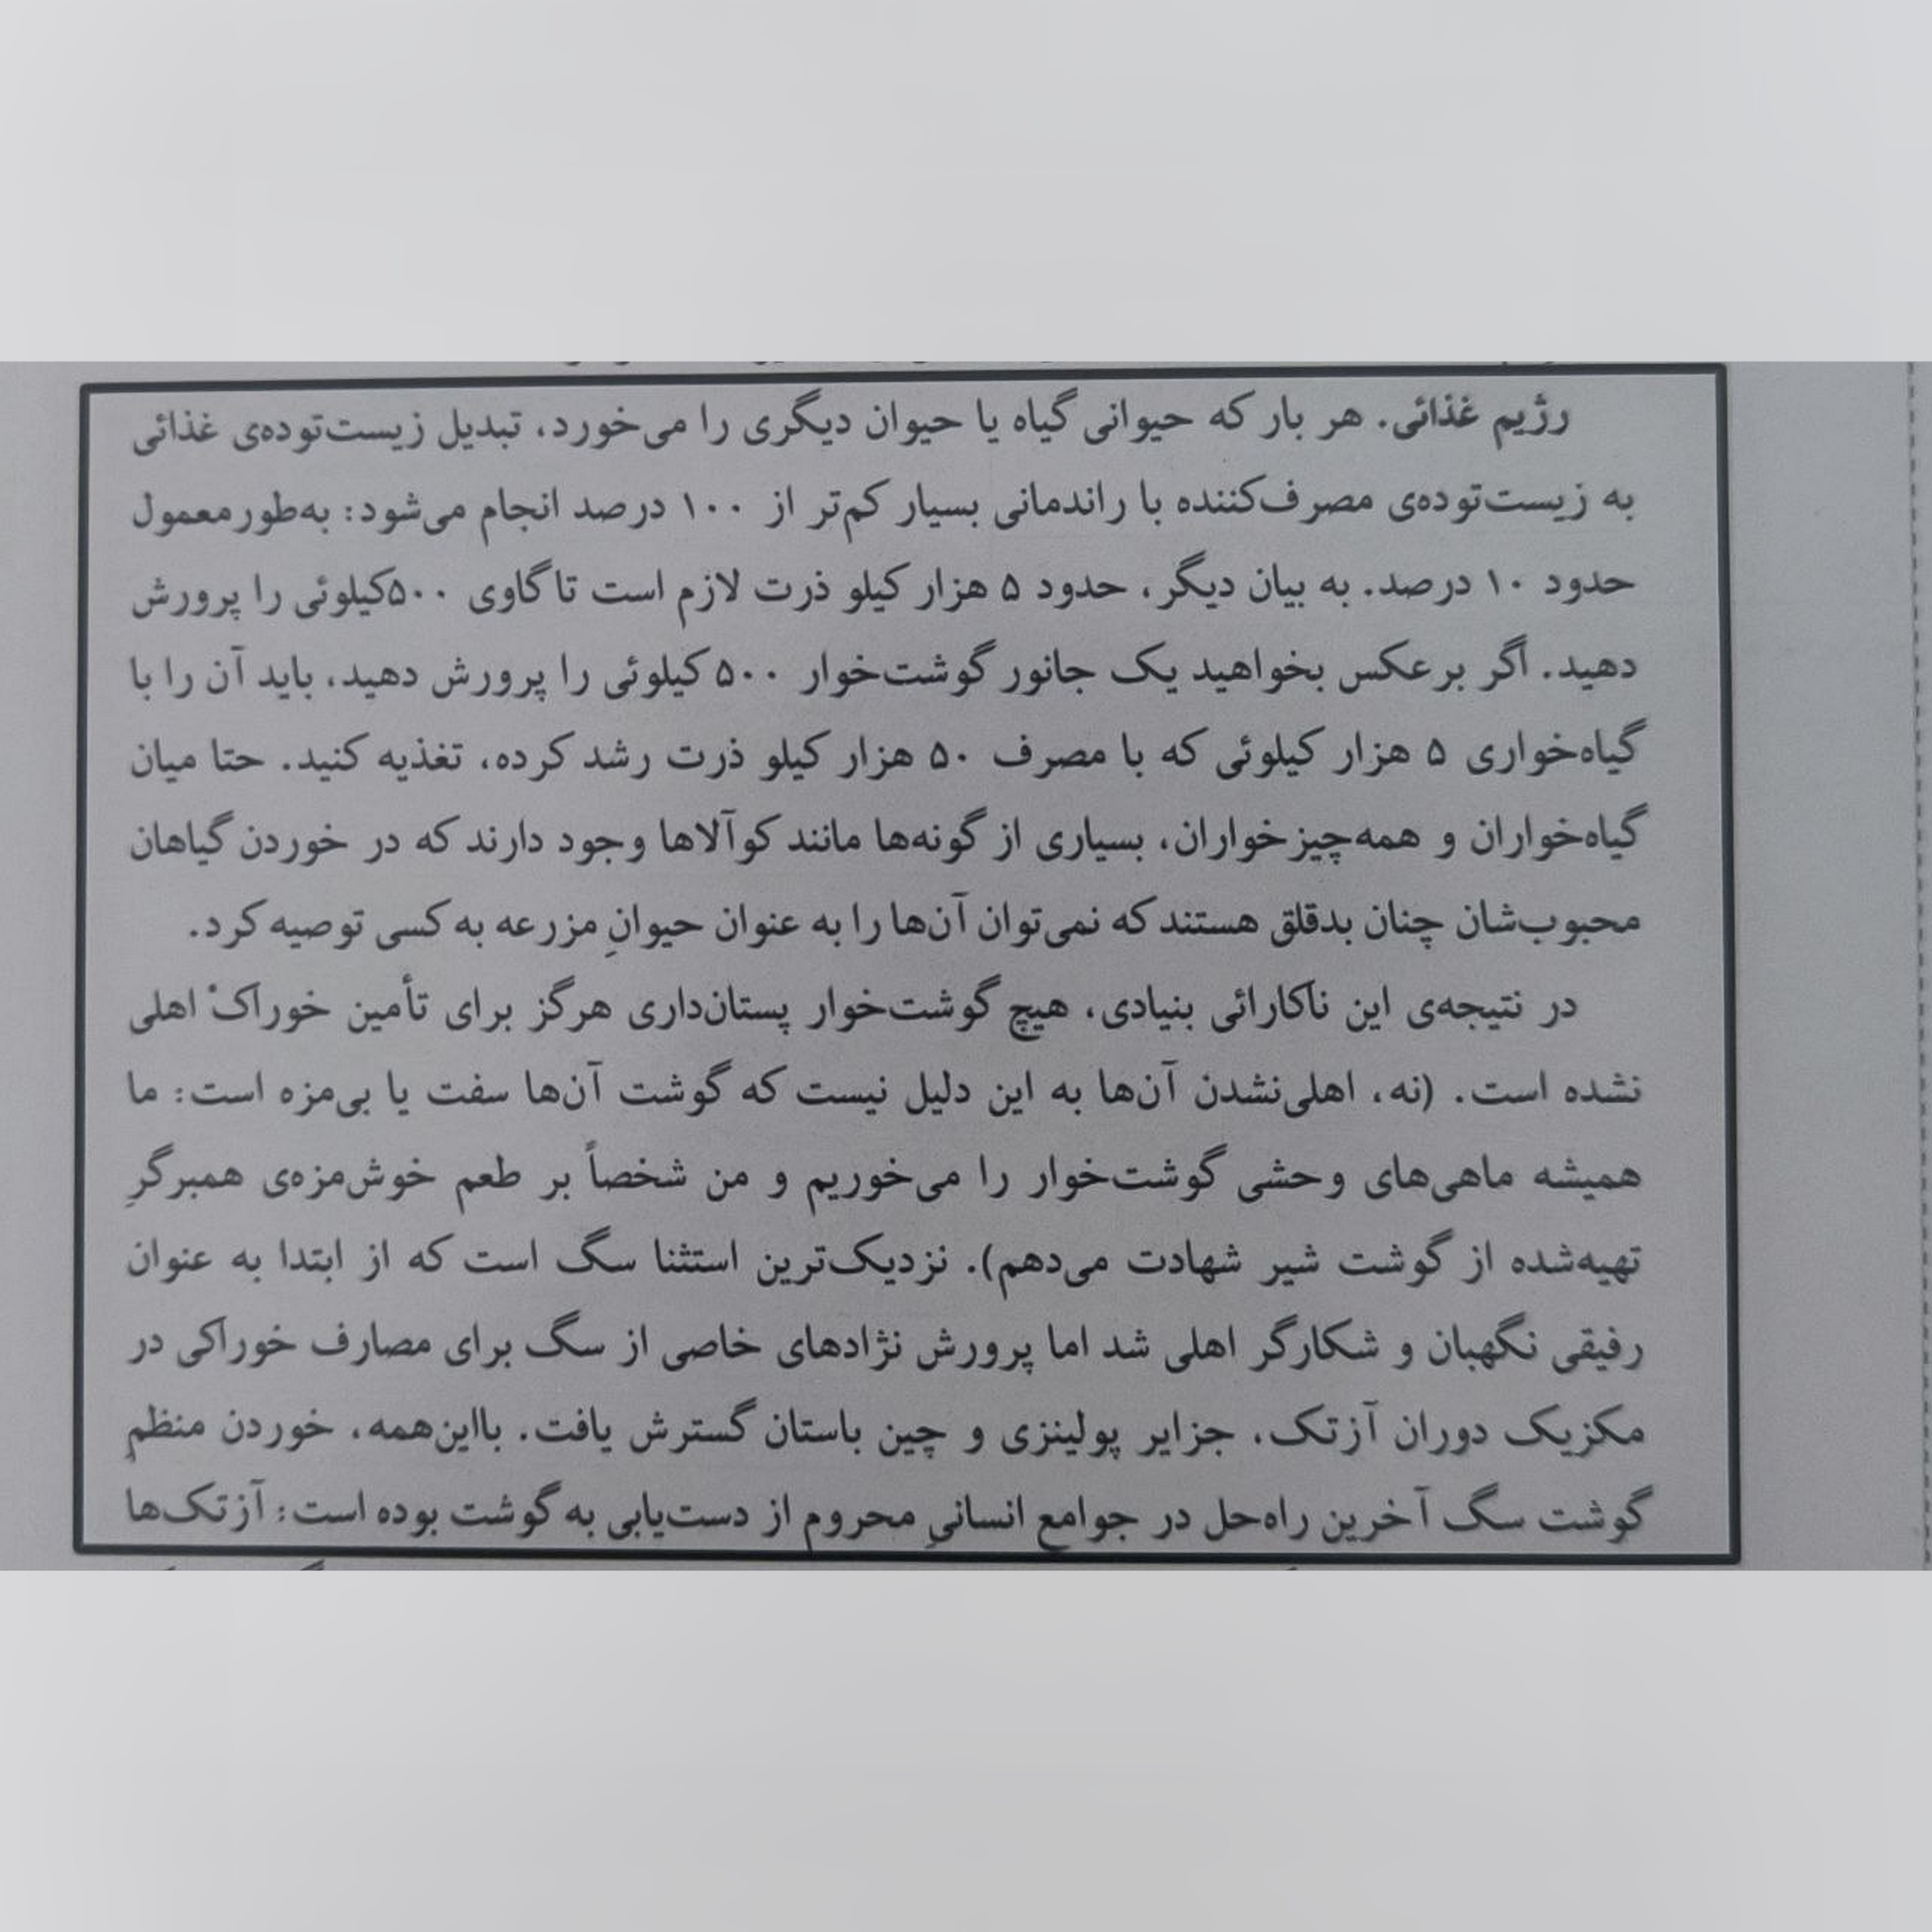 رژیم غذائی. هر بار که حیوانی گیاه یا حیوان دیگری را می‌خورد، تبدیل زیست‌توده‌ی غذائی
به زیست‌توده‌ی مصرف‌کننده با راندمانی بسیار کم‌تر از ۱۰۰ درصد انجام می‌شود: به‌طورمعمول
حدود ۱۰ درصد. به بیان دیگر، حدود ۵ هزار کیلو ذرت لازم است تا گاوی ۵۰۰کیلوئی را پرورش
دهید. اگر برعکس بخواهید یک جانور گوشت‌خوار ۵۰۰کیلوئی را پرورش دهید، باید آن را با
گیاه‌خواری ۵ هزار کیلوئی که با مصرف ۵۰ هزار کیلو ذرت رشد کرده، تغذیه کنید. حتا میان
گیاه‌خواران و همه‌چیزخواران، بسیاری از گونه‌ها مانند کوآلاها وجود دارند که در خوردن گیاهان
محبوب‌شان چنان بدقلق هستند که نمی‌توان آن‌ها را به عنوان حیوانِ مزرعه به کسی توصیه کرد.
در نتیجه‌ی این ناکارائی بنیادی، هیچ گوشت‌خوار پستان‌داری هرگز برای تأمین خوراکْ اهلی
نشده است. (نه، اهلی‌نشدن آن‌ها به این دلیل نیست که گوشت آن‌ها سفت یا بی‌مزه است: ما
همیشه ماهی‌های وحشی گوشت‌خوار را می‌خوریم و من شخصاً بر طعم خوش‌مزه‌ی همبرگرِ
تهیه‌شده از گوشت شیر شهادت می‌دهم). نزدیک‌ترین استثنا سگ است که از ابتدا به عنوان
رفیقی نگهبان و شکارگر اهلی شد اما پرورش نژادهای خاصی از سگ برای مصارف خوراکی در
مکزیک دوران آزتک، جزایر پولینزی و چین باستان گسترش یافت. بااین‌همه، خوردن منظمِ
گوشت سگ آخرین راه‌حل در جوامع انسانیِ محروم از دست‌یابی به گوشت بوده است: آزتک‌ها